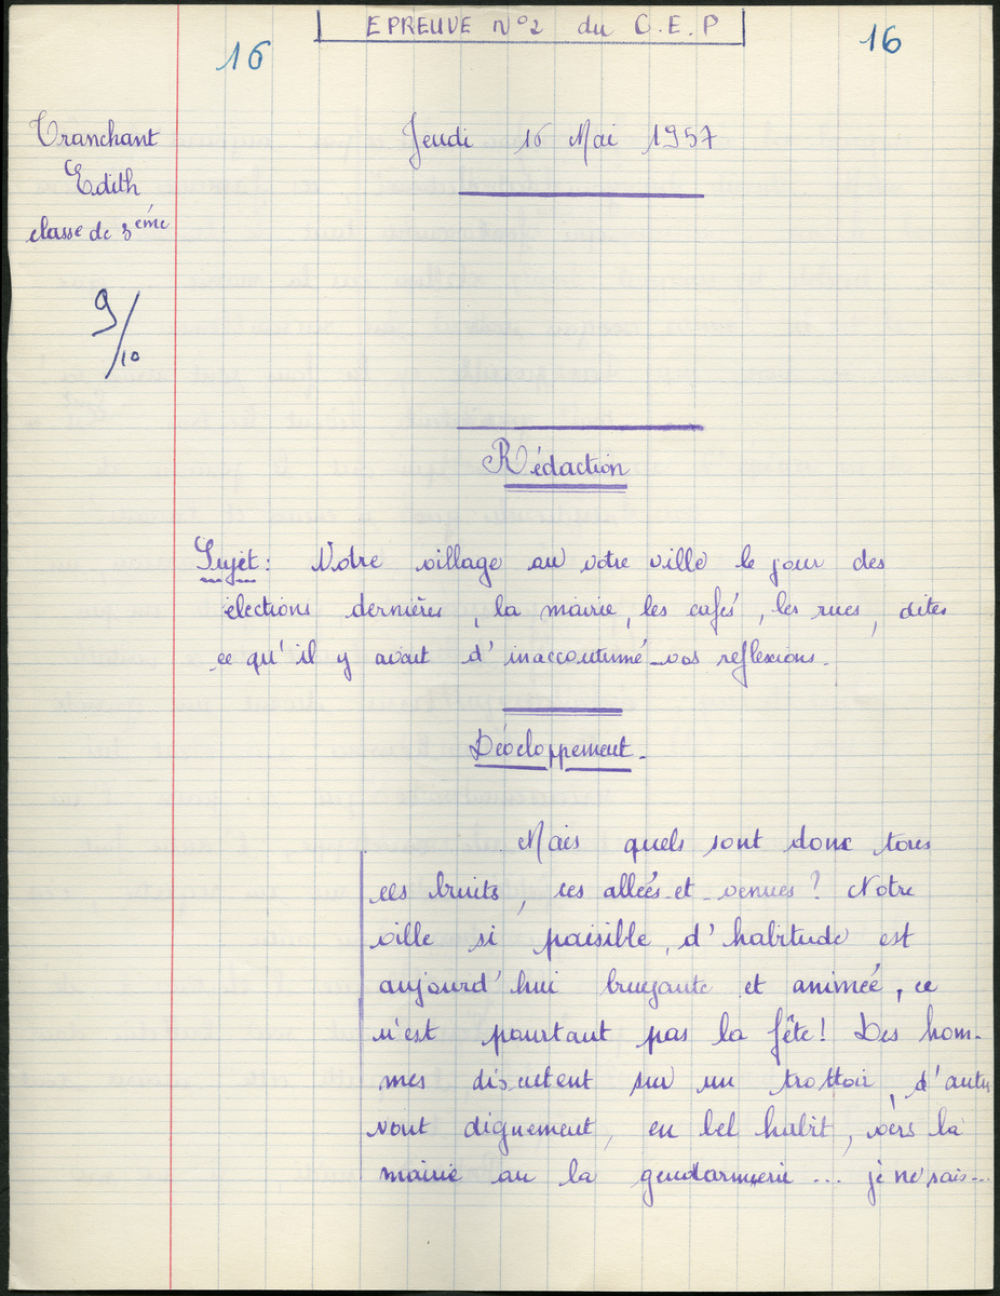 EPREUVE N°2 du C.E.P
16
16
Tranchant
Edith
classe de 3ème
9/10
Jeudi 16 Mai 1957
Rédaction
Sujet : Votre village ou votre ville le jour des
élections dernières, la mairie, les cafés, les rues, dites
ce qu'il y avait d'inaccoutumé - vos réflexions.
Développement.
Mais quels sont donc tous
ces bruits, ces allées et venues ? Notre
ville si paisible, d'habitude est
aujourd'hui bruyante et animée, ce
n'est pourtant pas la fête ! Des hom-
mes discutent sur un trottoir, d'autres
vont dignement, en bel habit, vers la
mairie ou la gendarmerie ... je ne sais...